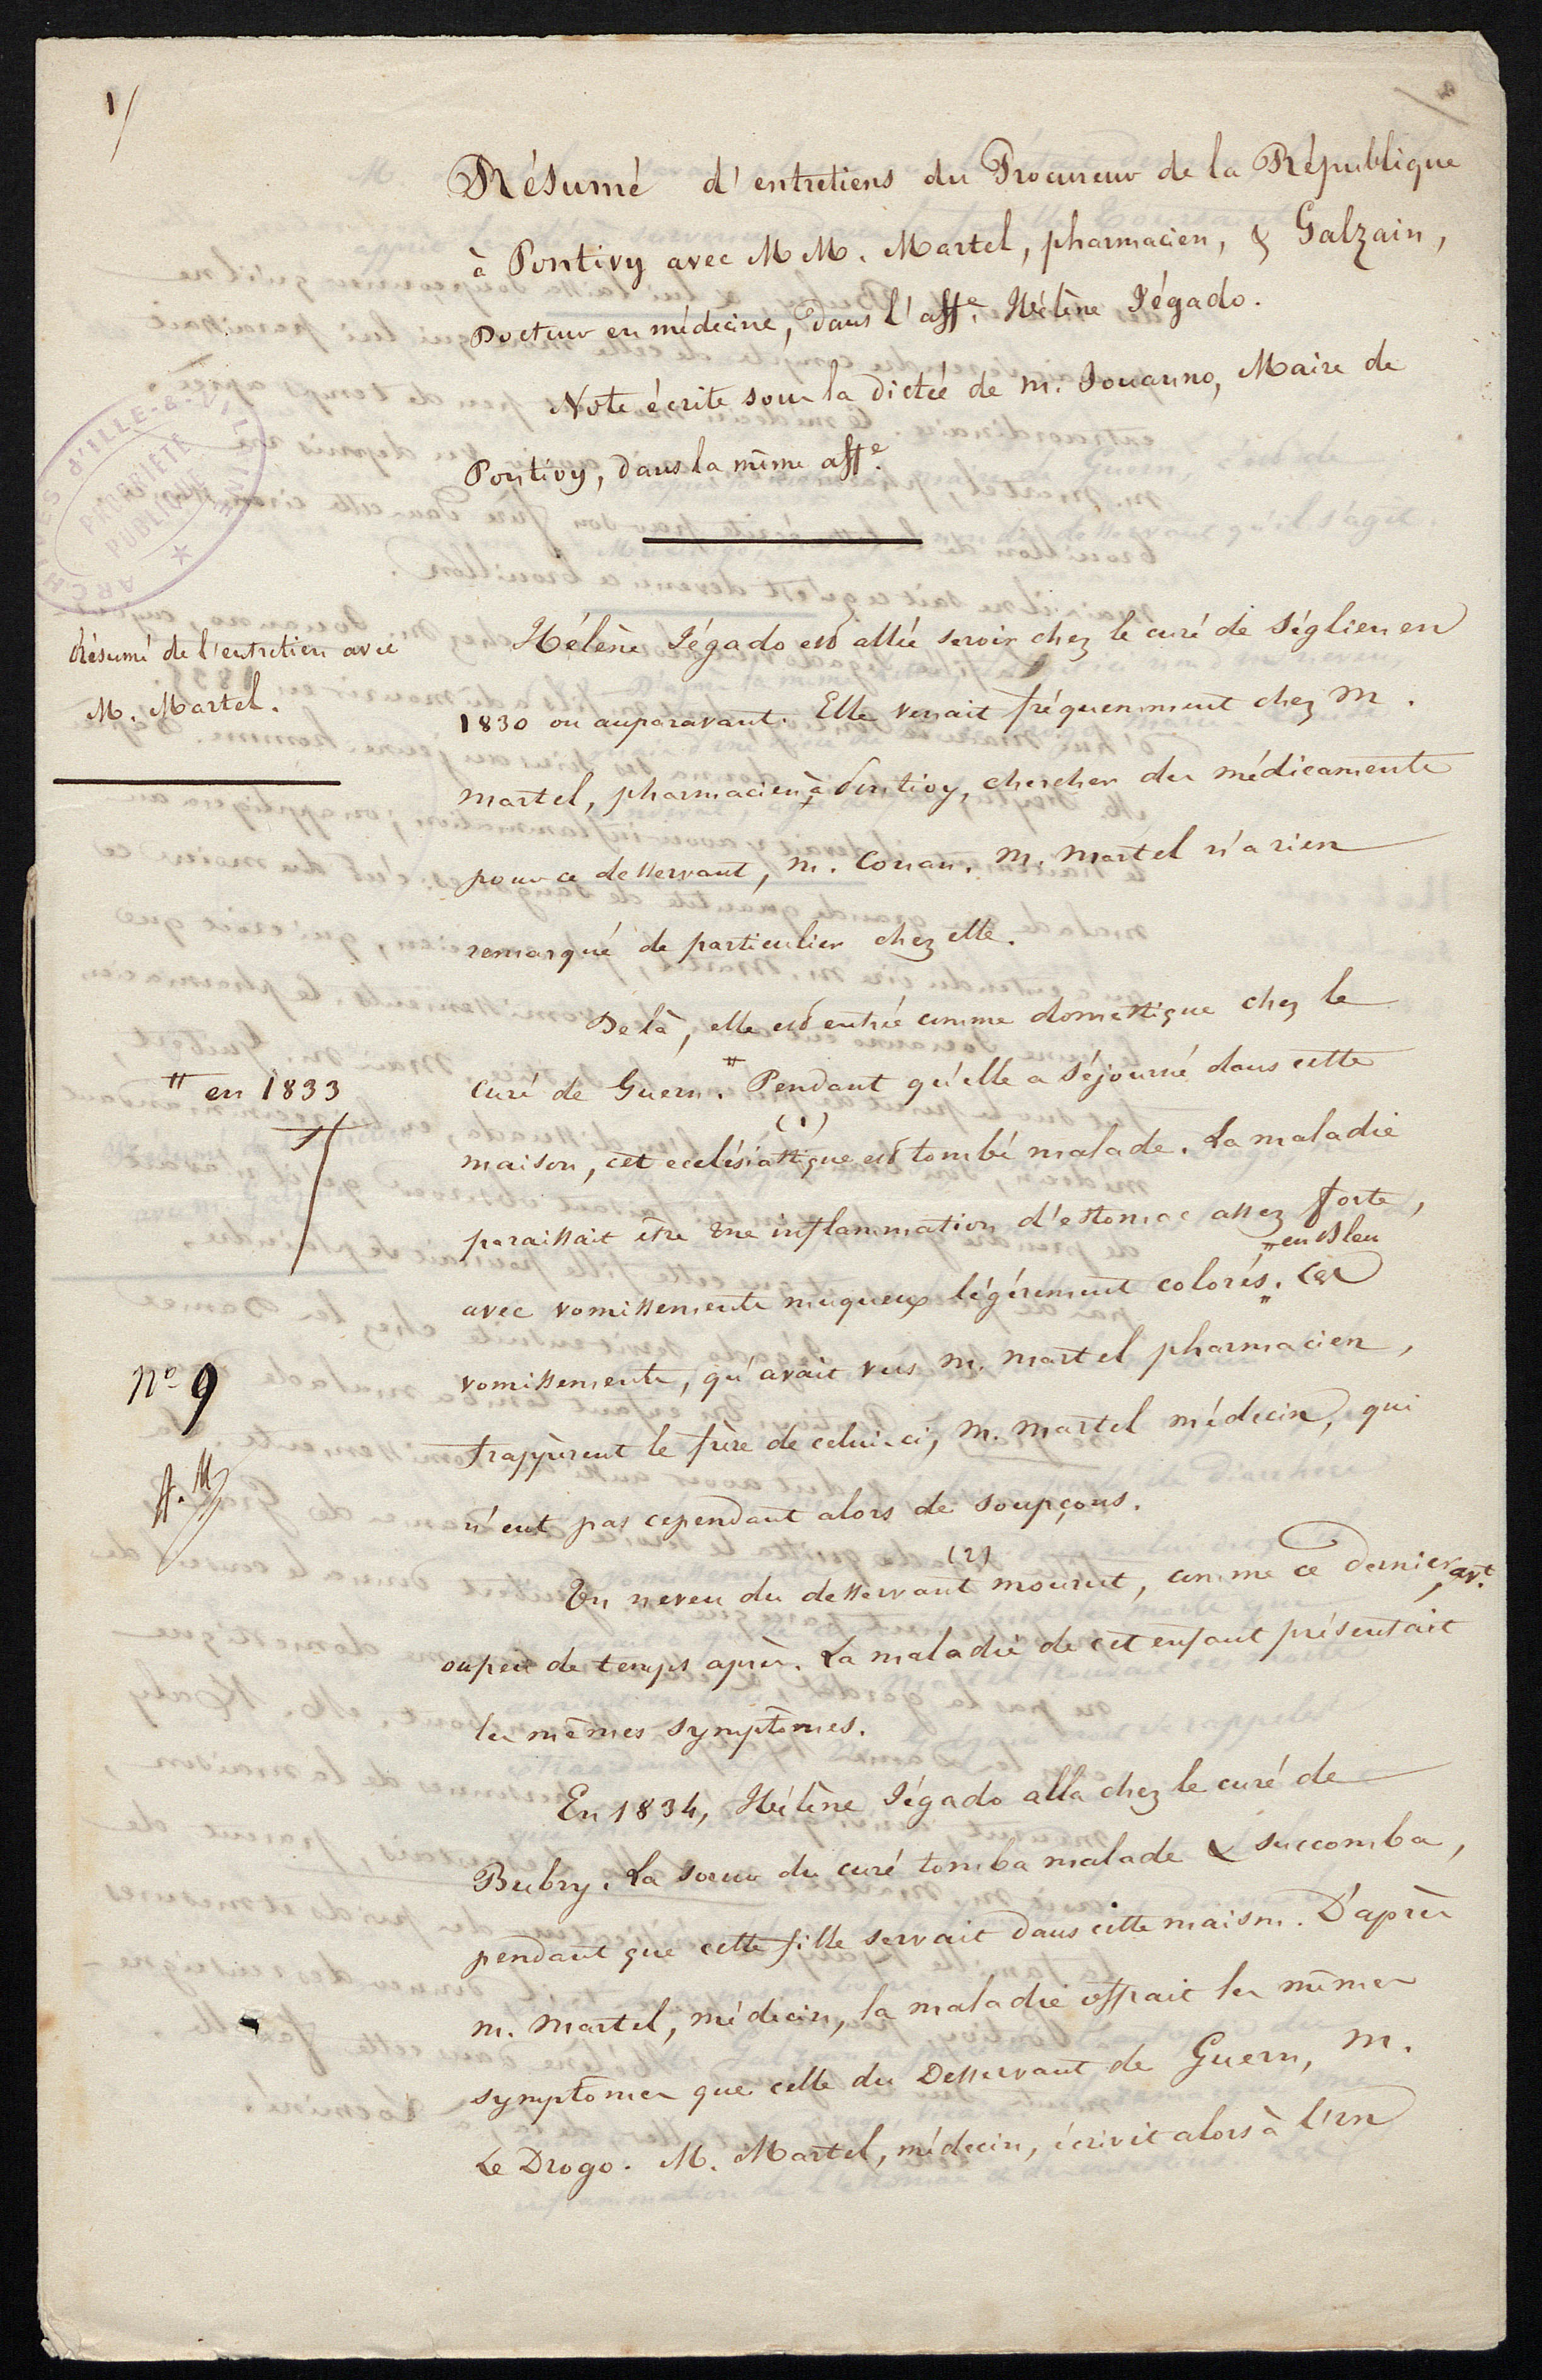 1/
Résumé d'entretiens du Procureur de la République
à Pontivy avec MM. Martel, pharmacien, & Galzain,
Docteur en médecine, dans l'aff.e Hélène Jégado.
Note écrite sous la dictée de m. Jouanno, Maire de
Pontivy, dans la même aff.e
ARCHIVES D'ILLE-&-VILAINE
PROPRIÉTÉ
PUBLIQUE
Résumé de l'entretien avec
M. Martel.
Hélène Jégado est allée servir chez le curé de Séglien en
1830 ou auparavant. Elle venait fréquemment chez M.
Martel, pharmacien à Pontivy, chercher des médicaments
pour ce desservant, m. Conan. M. Martel n'a rien
remarqué de particulier chez elle.
De là, elle est entrée comme domestique chez le
curé de Guern. # Pendant qu'elle a séjourné dans cette
# en 1833
maison, cet ecclésiastique (1) est tombé malade. La maladie
paraissait être une inflammation d'estomac assez forte,
avec vomissements muqueux légèrement colorés " en bleu ". Ces
vomissements, qu'avait vus m. martel pharmacien,
frappèrent le frère de celui-ci, m. martel médecin, qui
n'eut pas cependant alors de soupçons.
No 9
Un neveu du desservant (2) mourut, comme ce dernier, avt.
ou peu de temps après. La maladie de cet enfant présentait
les mêmes symptômes.
En 1834, Hélène Jégado alla chez le curé de
Bubry. La soeur du curé tomba malade & succomba,
pendant que cette fille servait dans cette maison. D'après
m. Martel, médecin, la maladie offrait les mêmes
symptômes que celle du Desservant de Guern, M.
Le Drogo. M. Martel, médecin, écrivit alors à l'un